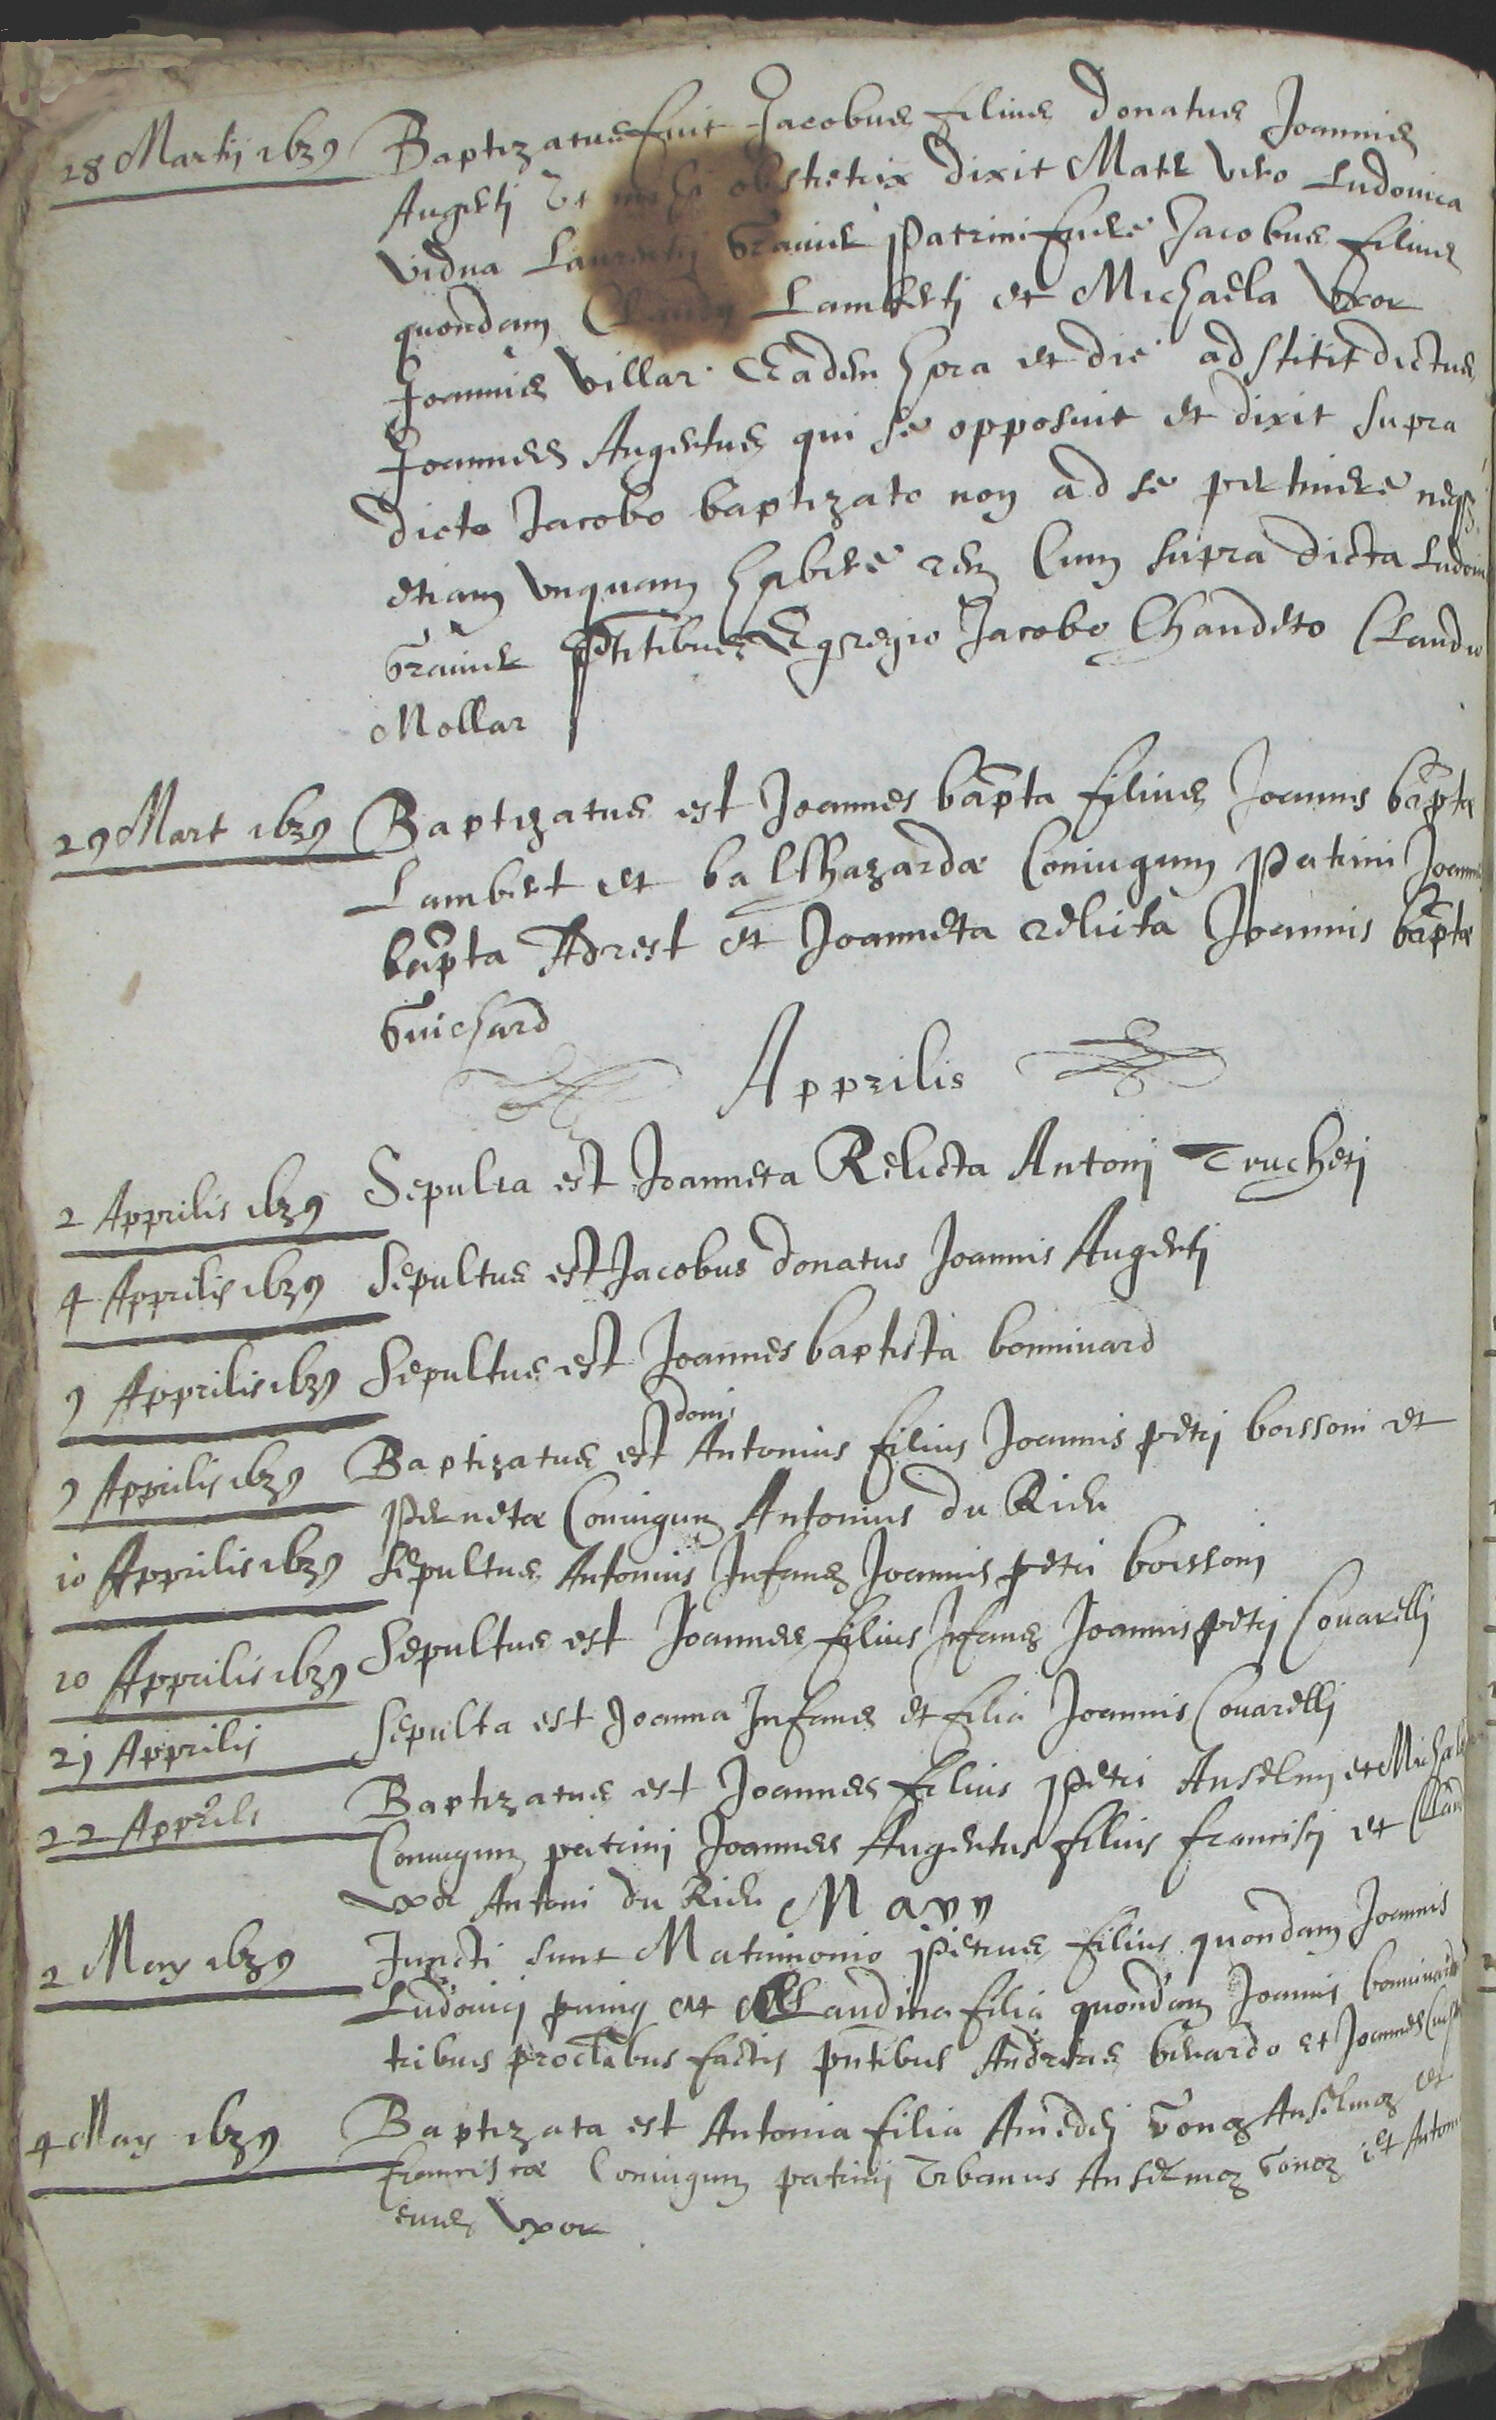 28 Martij 1639 Baptizatus fuit Jacobus filius donatus Joannis
Augerti Ut mihi obstetrix dixit Mater vero Ludovica
vidua Laurentij Gravier Patrini fuere Jacobus filius
quondam Claudij Lamberti et Michaela Uxor
Joannis Villar. Eadem hora et die adstitit dictus
Joannes Augertus qui se opposuit et dixit supra
dicto Jacobo baptizato non ad se pertinere neqz
etiam unquam habere rem Cum supra dicta Ludovi
Gravier Pntibus Egregio Jacobo Chandeto Claudio
Mollar
29 Mart 1639 Baptizatus est Joannes bapta filius Joannis baptæ
Lambert et balthazardæ Coniugum Patrini Joannes
bapta Adrest et Joanneta relicta Joannis baptæ
Guichard
Apprilis
2 Apprilis 1639 Sepulta est Joanneta Relicta Antonij Trucheti
4 Apprilis 1639 Sepultus est Jacobus donatus Joannis Augerti
9 Apprilis 1639 Sepultus est Joannes baptista bonnivard
domi
9 Apprilis 1639 Baptizatus est Antonius filius Joannis petri boissoni et
Pernetæ Coniugum Antonius du Rieu
10 Apprilis 1639 Sepultus Antonius Infans Joannis petri boissoni
20 Apprilis 1639 Sepultus est Joannes filius Infans Joannis petri Covarelli
21 Apprilis Sepulta est Joanna Infans et filia Joannis Covarelli
22 Apprils Baptizatus est Joannes filius Petri Anselmi et
Coniugum patrini Joannes Augertus filius francisci et
uxor Antoni du Rieu Mayy
2 May 1639 Juncti sunt Matrimonio Petrus filius quondam Joannis
Ludovici et Claudina filia quondam Joannis
tribus proclabus factis pntibus Andreas berardo et Joannes
4 May 1639 Baptizata est Antonia filia Amedei Anselmoz et
franciscæ Coniugum patrini Urbanus Anselmoz et
eius Uxor